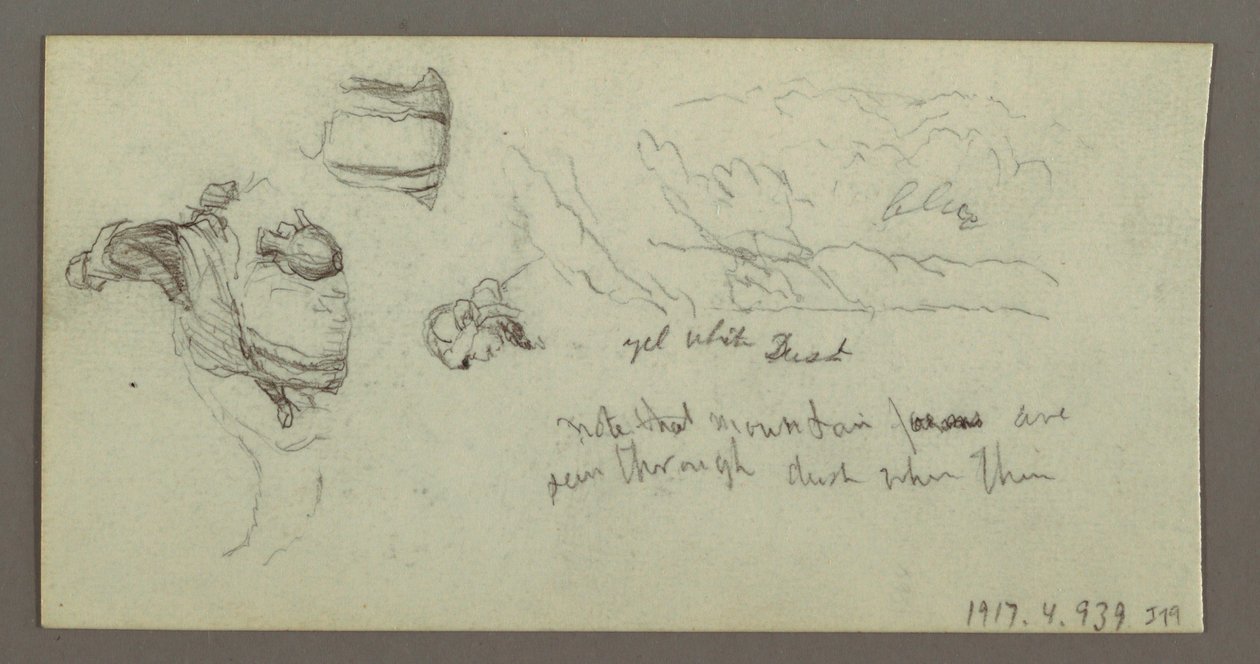 blue
yel white Dust
note that mountain forms are
seen through dust when thin
1917.4.939 J19